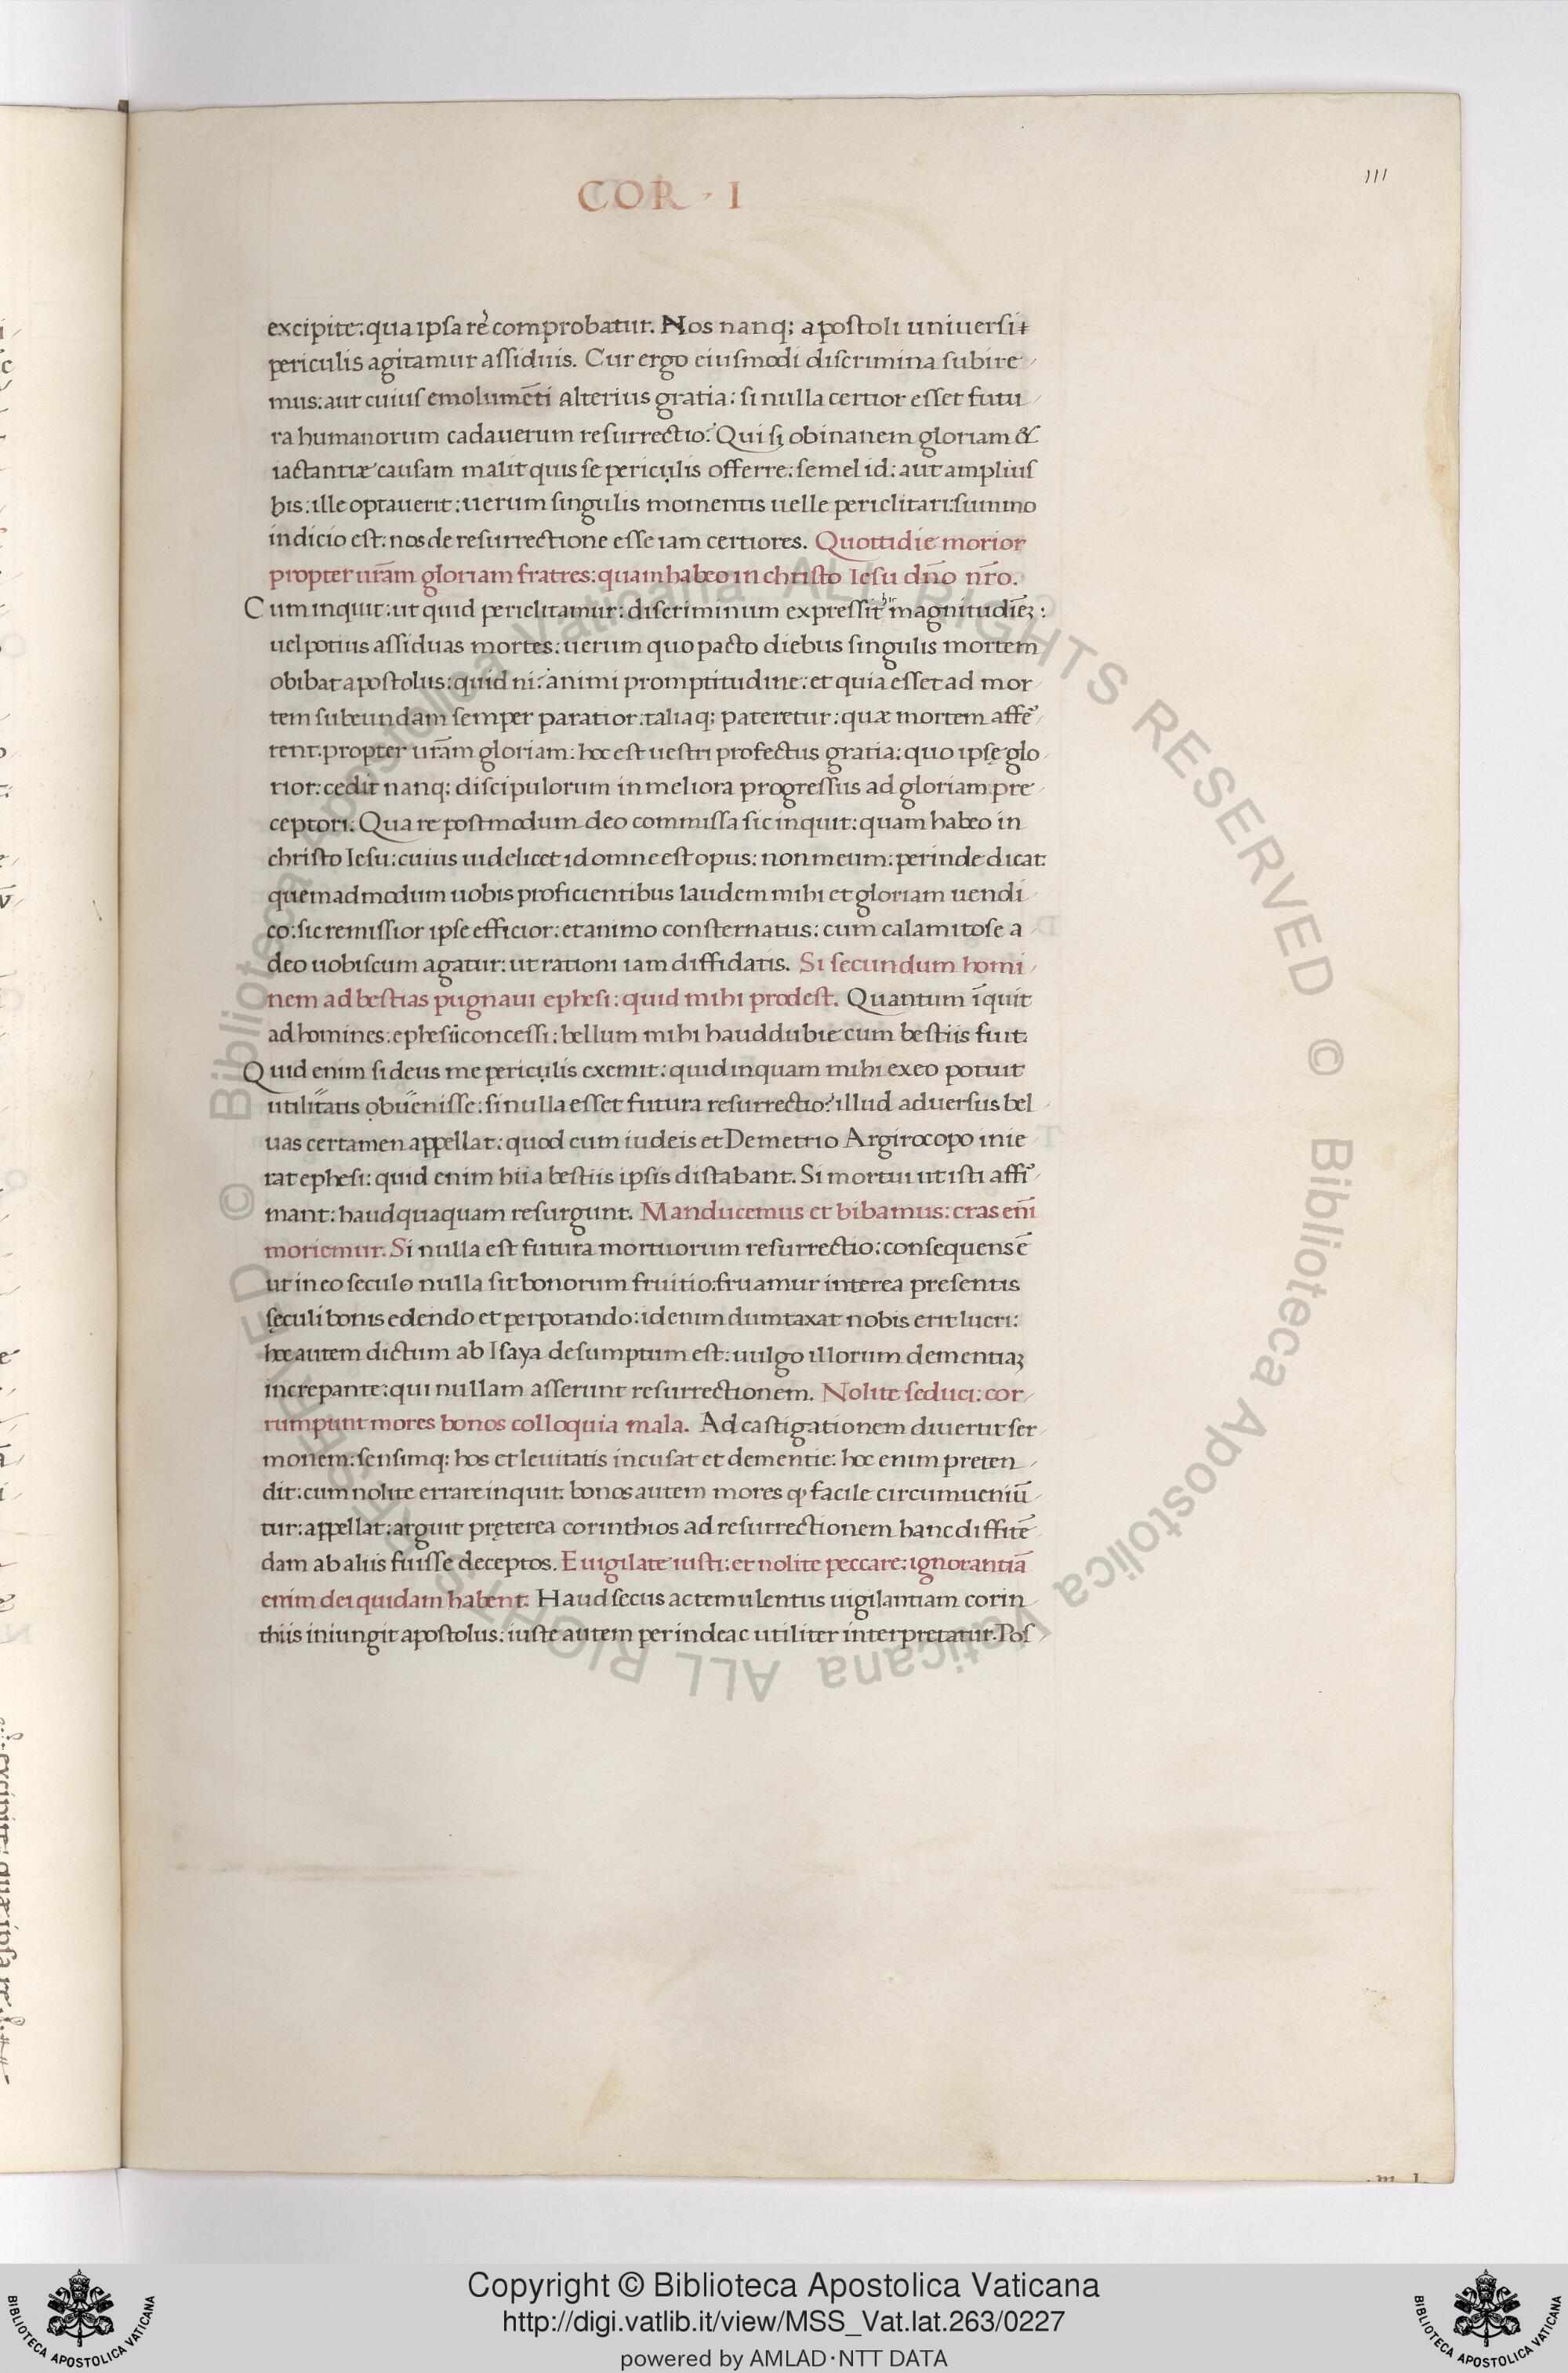 COR · I
111
excipite: qua ipsa rẽ comprobatur. Nos nanq; apostoli uniuersi
periculis agitamur assiduis. Cur ergo eiusmodi discrimina subire
mus: aut cuius emolumẽti alterius gratia: si nulla certior esset futu
ra humanorum cadauerum resurrectio? Qui si ob inanem gloriam &
iactantiæ causam malit quis se periculis offerre: semel id: aut amplius
bis: ille optauerit: uerum singulis momentis uelle periclitari: summo
indicio est: nos de resurrectione esse iam certiores. Quottidie morior
propter urãm gloriam fratres: quam habeo in christo Iesu dño nr̃o.
Cum inquit: ut quid periclitamur: discriminum expressit magnitudinẽ:
uel potius assiduas mortes: uerum quo pacto diebus singulis mortem
obibat apostolus: quid ni? animi promptitudine: et quia esset ad mor
tem subeundam semper paratior: taliaq; pateretur: quæ mortem affer
rent. propter urãm gloriam: hoc est uestri profectus gratia: quo ipse glo
rior: cedit nanq; discipulorum in meliora progressus ad gloriam pre
ceptori. Qua re postmodum deo commissa sic inquit: quam habeo in
christo Iesu: cuius uidelicet id omne est opus: non meum: perinde dicat:
quemadmodum uobis proficientibus laudem mihi et gloriam uendi
co: sic remissior ipse efficior: et animo consternatus: cum calamitose a
deo uobiscum agatur: ut rationi iam diffidatis. Si secundum homi
nem ad bestias pugnaui ephesi: quid mihi prodest. Quantum ĩquit
ad homines: ephesii concessi: bellum mihi haud dubie cum bestiis fuit.
Quid enim si deus me periculis exemit: quid inquam mihi ex eo potuit
utilitatis obuenisse: si nulla esset futura resurrectio? illud aduersus bel
uas certamen appellat: quod cum iudeis et Demetrio Argirocopo inie
rat ephesi: quid enim hii a bestiis ipsis distabant. Si mortui ut isti affir
mant: haudquaquam resurgunt. Manducemus et bibamus: cras eñi
moriemur. Si nulla est futura mortuorum resurrectio: consequens ẽ
ut in eo seculo nulla sit bonorum fruitio: fruamur interea presentis
sęculi bonis edendo et perpotando: id enim dumtaxat nobis erit lucri:
hoc autem dictum ab Isaya desumptum est: uulgo illorum dementiaȝ
increpante: qui nullam asserunt resurrectionem. Nolite seduci: cor
rumpunt mores bonos colloquia mala. Ad castigationem diuertit ser
monem: sensimq: hos et leuitatis incusat et dementie: hoc enim preten
dit: cum nolite errare inquit. bonos autem mores q̃ facile circumueniũ
tur: appellat: arguit pręterea corinthios ad resurrectionem hanc diffitẽ
dam ab aliis fuisse deceptos. Euigilate iusti: et nolite peccare: ignorantiã
enim dei quidam habent. Haud secus ac temulentus uigilantiam corin
thiis iniungit apostolus: iuste autem perinde ac utiliter interpretatur. Pos
Copyright © Biblioteca Apostolica Vaticana
http://digi.vatlib.it/view/MSS_Vat.lat.263/0227
powered by AMLAD·NTT DATA
BIBLIOTECA APOSTOLICA VATICANA
BIBLIOTECA APOSTOLICA VATICANA
© Biblioteca Apostolica Vaticana ALL RIGHTS RESERVED © Biblioteca Apostolica Vaticana ALL RIGHTS RESERVED